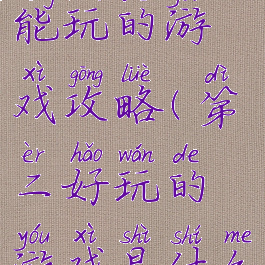 能玩的游
xì gōng lüè dì
戏攻略(第
èr hǎo wán de
二好玩的
yóu xì shì shí me